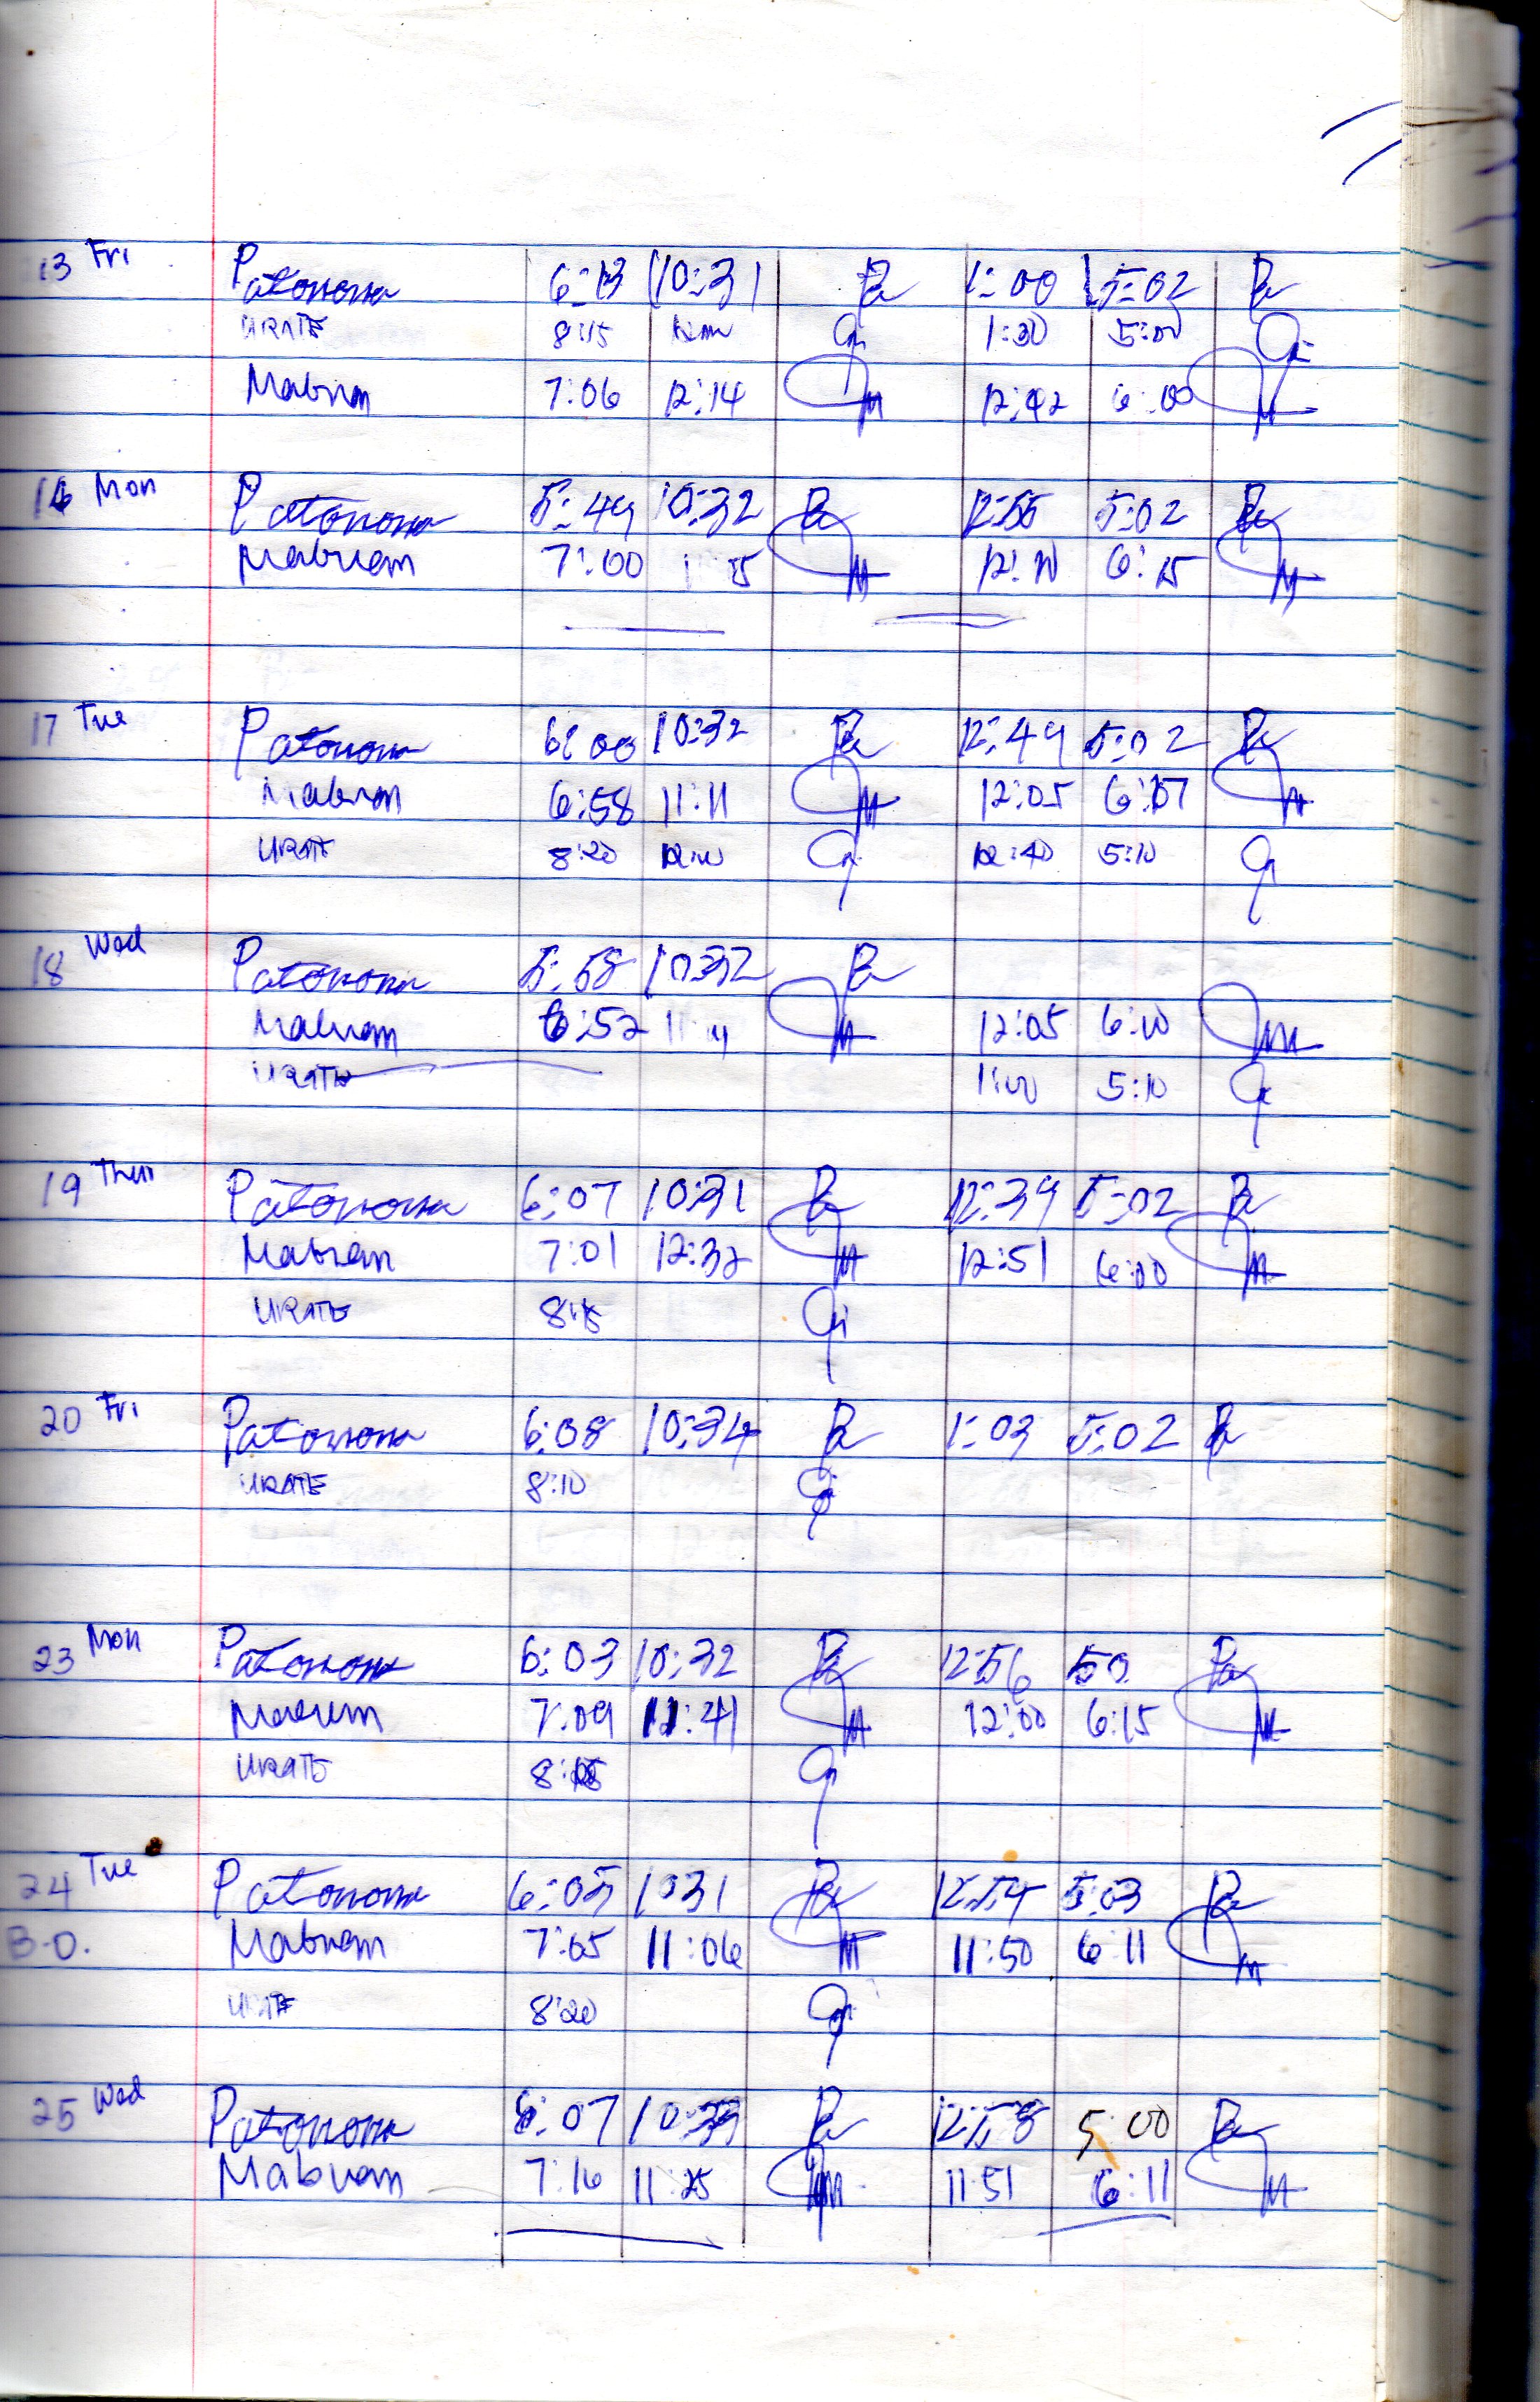 13 Fri Patonona 6:13 10:31 Pa 1:00 5:02 Pa
URATE 8:15 1:30 5:00
Mabuan 7:06 12:14 M 12:42 6:00 M
16 Mon Patonona 5:49 10:32 Pa 12:55 5:02 Pa
Mabuam 7:00 M 12:10 6:15 M
17 Tue Patonona 6:00 10:32 Pa 12:49 5:02 Pa
Mabuan 6:58 11:11 M 12:05 6:07 M
URATE 8:20 12:00 12:40 5:10
18 Wed Patonona 5:58 10:32 Pa
Mabuam 6:52 M 12:05 6:10 M
URATE 1:00 5:10
19 Thur Patonona 6:07 10:31 Pa 12:39 5:02 Pa
Mabuam 7:01 12:32 M 12:51 6:00 M
URATE 8:15
20 Fri Patonona 6:08 10:34 Pa 1:03 5:02 Pa
URATE 8:10
23 Mon Patonona 6:03 10:32 Pa 12:56 Pa
7:09 11:41 M 12:00 6:15 M
URATE
24 Tue Patonona 6:05 10:31 Pa 12:54 5:03 Pa
B.O. Mabuam 7:05 11:06 M 11:50 6:11 M
URATE 8:20
25 Wed Patonona 6:07 Pa 12:58 5:00 Pa
Mabuam 7:16 11:25 M 11:51 6:11 M